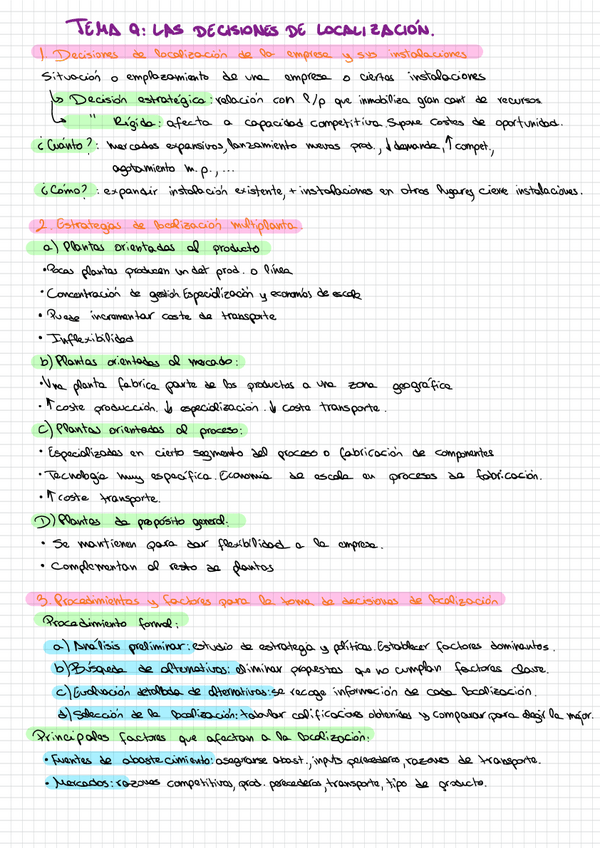 TEMA 9: LAS DECISIONES DE LOCALIZACIÓN.
1. Decisiones de localización de la empresa y sus instalaciones
Situación o emplazamiento de una empresa o ciertas instalaciones
↳ Decisión estratégica: relación con l/p que inmoviliza gran cant de recursos
↳ " Rígida: afecta a capacidad competitiva. Supone costes de oportunidad.
¿Cuánto?: mercados expansivos, lanzamiento nuevos prod., ↓ demanda, ↑ compet.,
agotamiento m.p., ...
¿Cómo?: expandir instalación existente, + instalaciones en otros lugares, cierre instalaciones.
2. Estrategias de localización multiplanta.
a) Plantas orientadas al producto
• Pocas plantas producen un det prod. o línea
• Concentración de gestión Especialización y economías de escala
• Puede incrementar coste de transporte
• Inflexibilidad
b) Plantas orientadas al mercado:
• Una planta fabrica parte de los productos a una zona geográfica
• ↑ coste producción. ↓ especialización. ↓ coste transporte.
C) Plantas orientadas al proceso:
• Especializadas en cierto segmento del proceso o fabricación de componentes
• Tecnología muy específica. Economía de escala en procesos de fabricación.
• ↑ coste transporte.
D) Plantas de propósito general:
• Se mantienen para dar flexibilidad a la empresa.
• Complementan al resto de plantas
3. Procedimientos y factores para la toma de decisiones de localización
Procedimiento formal:
a) Análisis preliminar: estudio de estrategia y políticas. Establecer factores dominantes.
b) Búsqueda de alternativas: eliminar propuestas que no cumplan factores clave.
c) Evaluación detallada de alternativas: se recoge información de cada localización.
d) Selección de la localización: tabular calificaciones obtenidas y comparar para elegir la mejor.
Principales factores que afectan a la localización:
• Fuentes de abastecimiento: asegurarse abast., inputs perecederos, razones de transporte.
• Mercados: razones competitivas, prod. perecederos, transporte, tipo de producto.